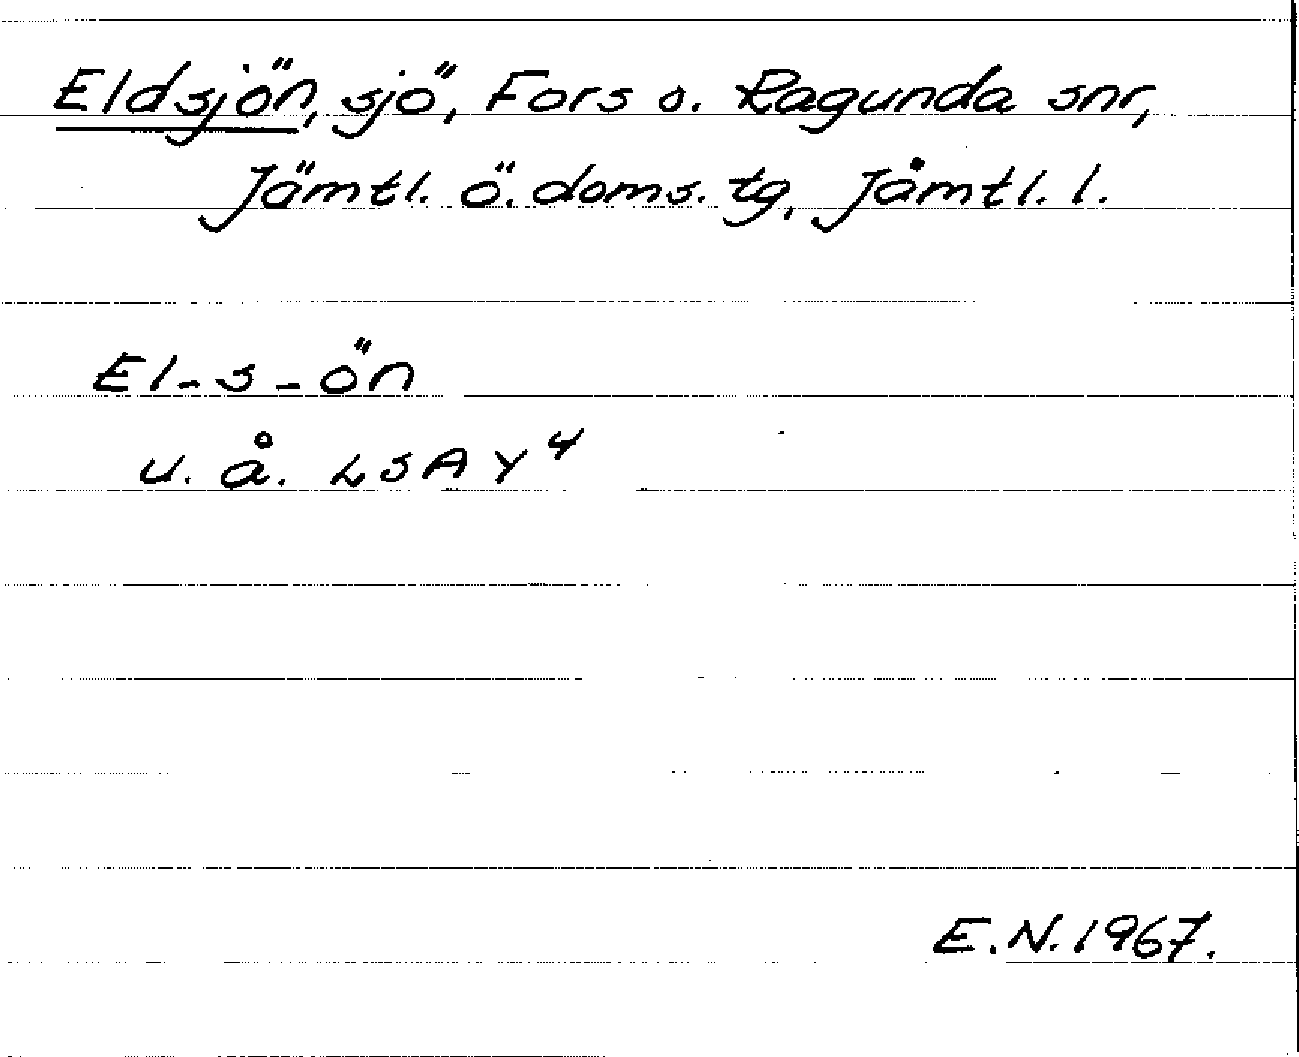 Eldsjön, sjö, Fors o. Ragunda snr,
Jämtl. ö. doms. tg, Jämtl. l.
El-s-ön
u. å. LSA Y⁴
E.N. 1967.